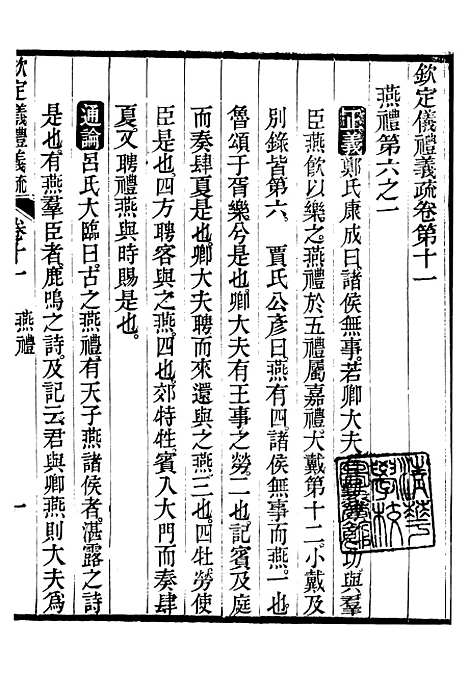 欽定儀禮義疏卷第十一
燕禮第六之一
正義鄭氏康成曰諸侯無事若卿大夫有勤勞之功與羣
臣燕飲以樂之燕禮於五禮屬嘉禮大戴第十二小戴及
別錄皆第六 賈氏公彥曰燕有四諸侯無事而燕一也
卿大夫有王事之勞二也記賓及庭
魯頌于胥樂兮是也卿大夫有王事之勞二也記賓及庭
而奏肆夏是也卿大夫聘而來還與之燕三也四牡勞使
臣是也四方聘客與之燕四也郊特牲賓入大門而奏肆
夏又聘禮燕與時賜是也
通論呂氏大臨曰古之燕禮有天子燕諸侯者湛露之詩
是也有燕羣臣者鹿鳴之詩及記云君與卿燕則大夫為
欽定儀禮義疏 卷十一 燕禮 一
清華學校圖書館